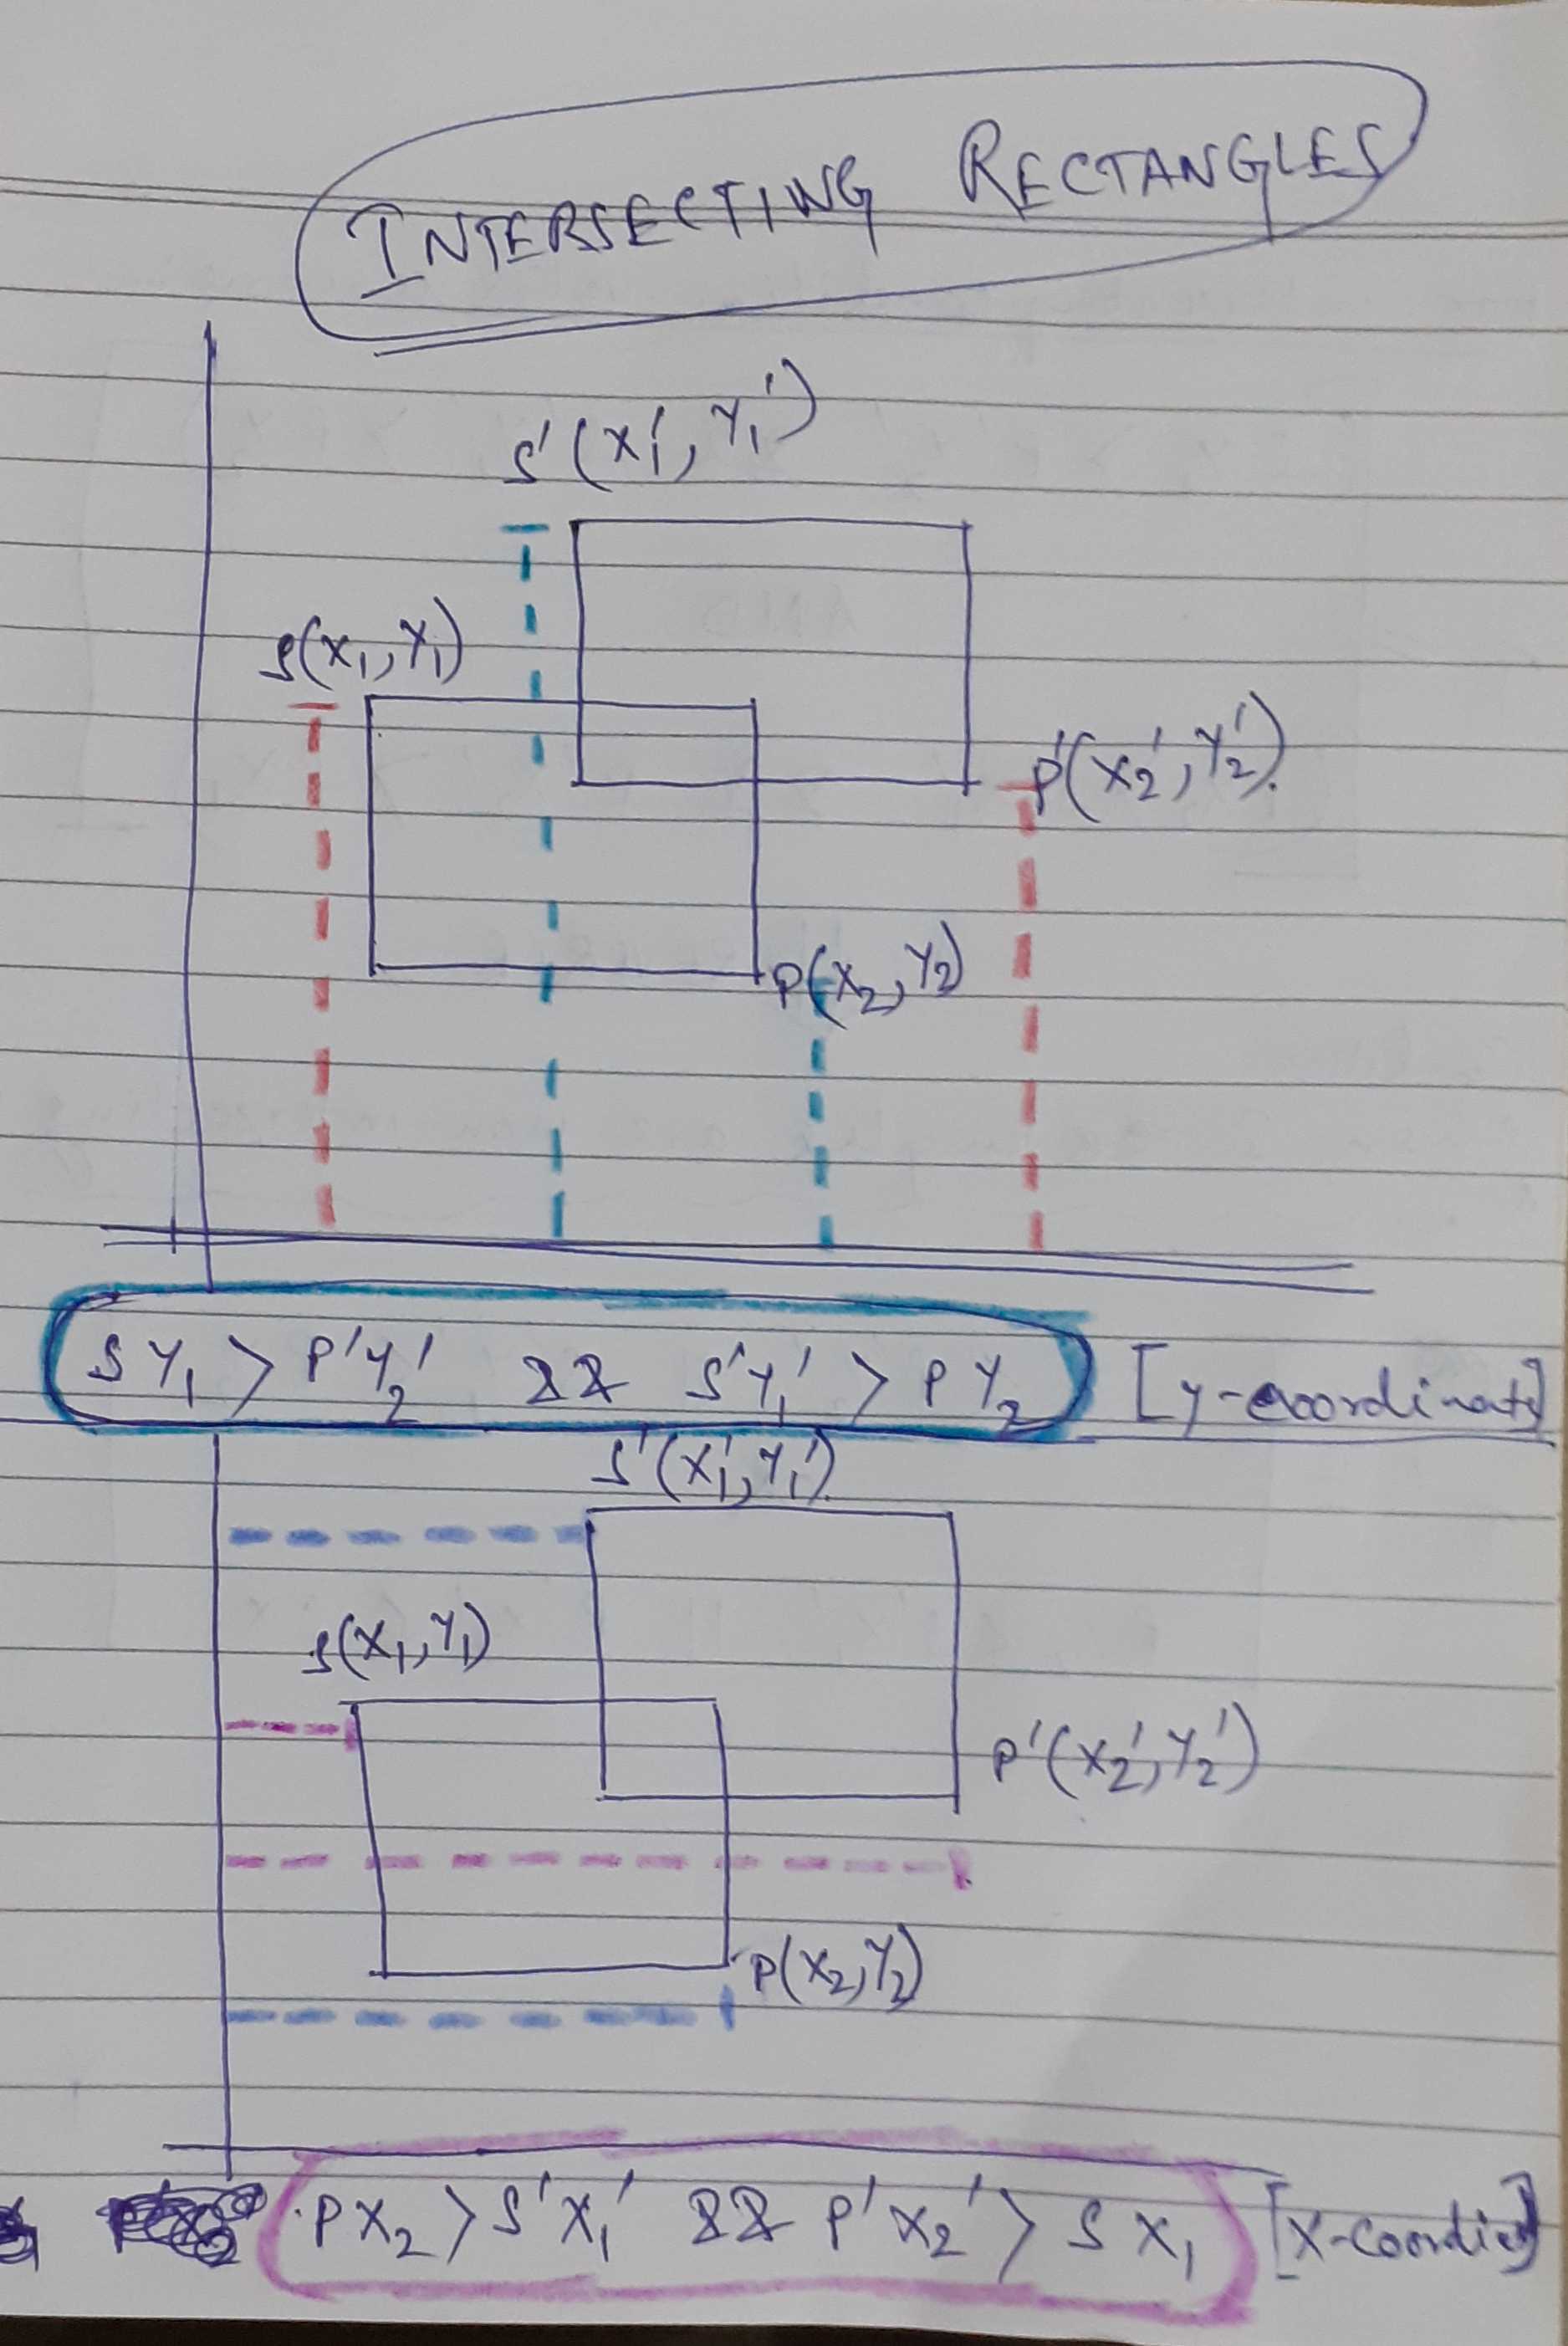 INTERSECTING RECTANGLES
S'(X1', Y1')
S(X1, Y1)
P'(X2', Y2')
P(X2, Y2)
SY1 > P'Y2' && S'Y1' > PY2 [y-coordinate]
S'(X1', Y1')
S(X1, Y1)
P'(X2', Y2')
P(X2, Y2)
PX2 > S'X1' && P'X2' > SX1